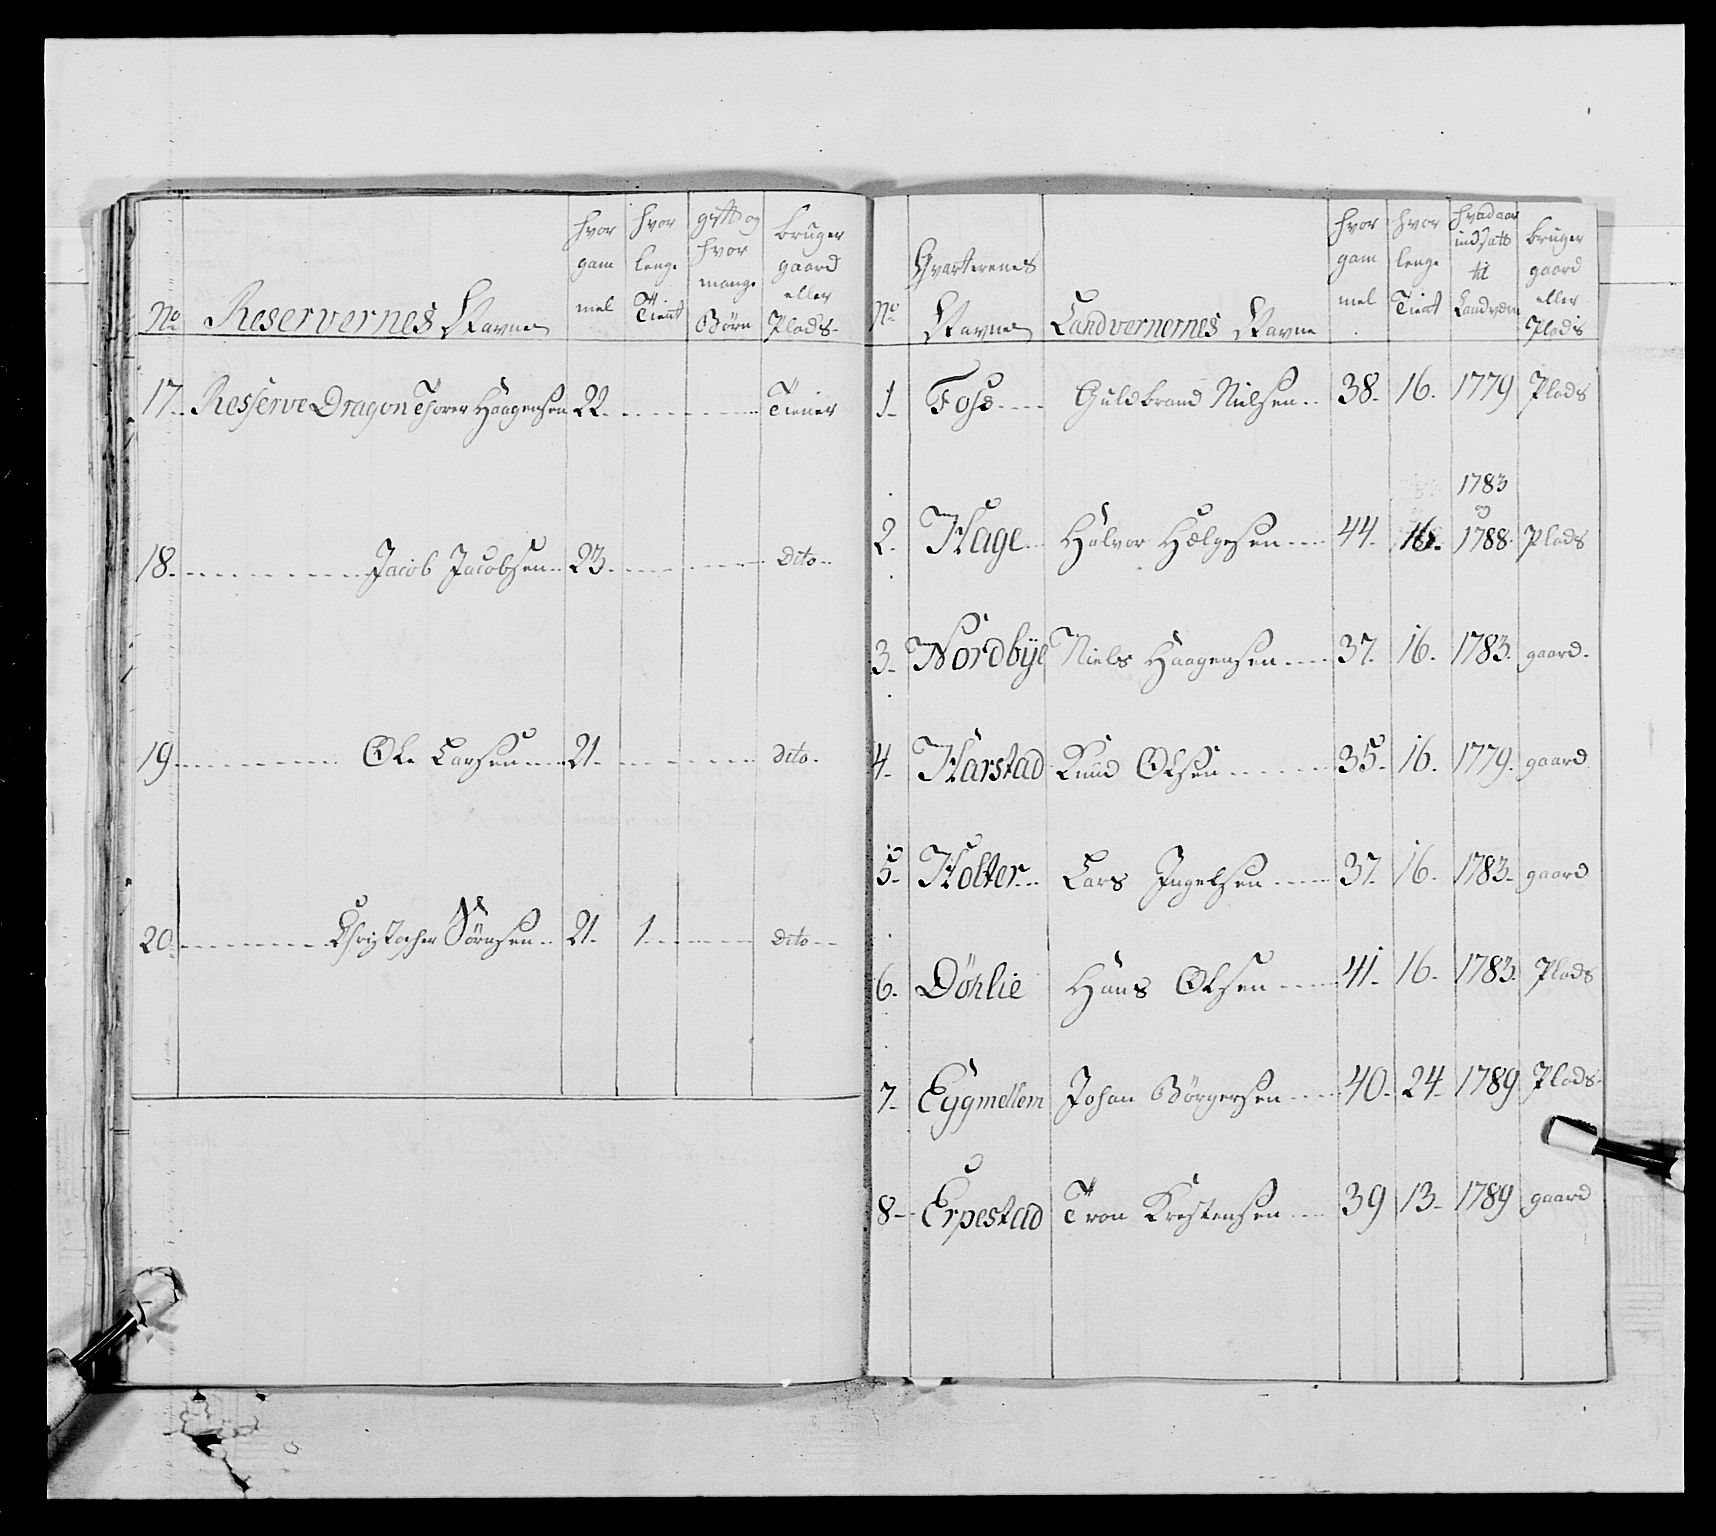 No Reservernes Navne hvor gam mel hvor lenge Tient gift og hvor mange Börn bruger gaard eller Plads
17. Resserve Dragon Thorer Haagensen 22. Tiener
18. Jacob Jacobsen 23. dito
19 Ole Larsen 21. dito
20 Christopher Sörensen 21. 1 dito
No Qvarterenes Navne Landvernernes Navne hvor gam mel hvor lenge Tient hvad aar indsatt til Landværn bruger gaard eller Plads
1. Foss Guldbrand Nielsen 38. 16. 1779 Plads
2. Hage Halvor Helgesen 44. 16. 1783 og 1788. Plads
3. Nordbÿe Niels Haagensen 37. 16. 1783. gaard
4. Harstad Knud Olsen 35. 16. 1779. gaard
5. Holter Lars Ingelsen 37. 16. 1783. gaard
6. Döhlie Hans Olsen 41. 16. 1783. Plads
7. Eggmellom Johan Börgersen 40. 24. 1789 Plads
8. Erpestad Tron Krestensen 39 13. 1789 gaard